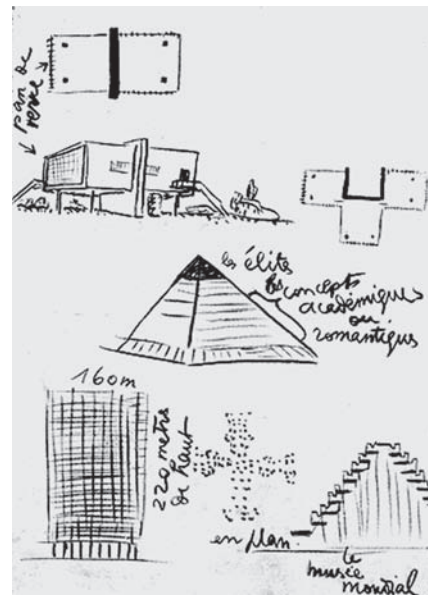 pan de
verre
les élites
les concepts
académiques
ou
romantiques
160m
220 metrs
de haut
en plan
le
musée
mondial